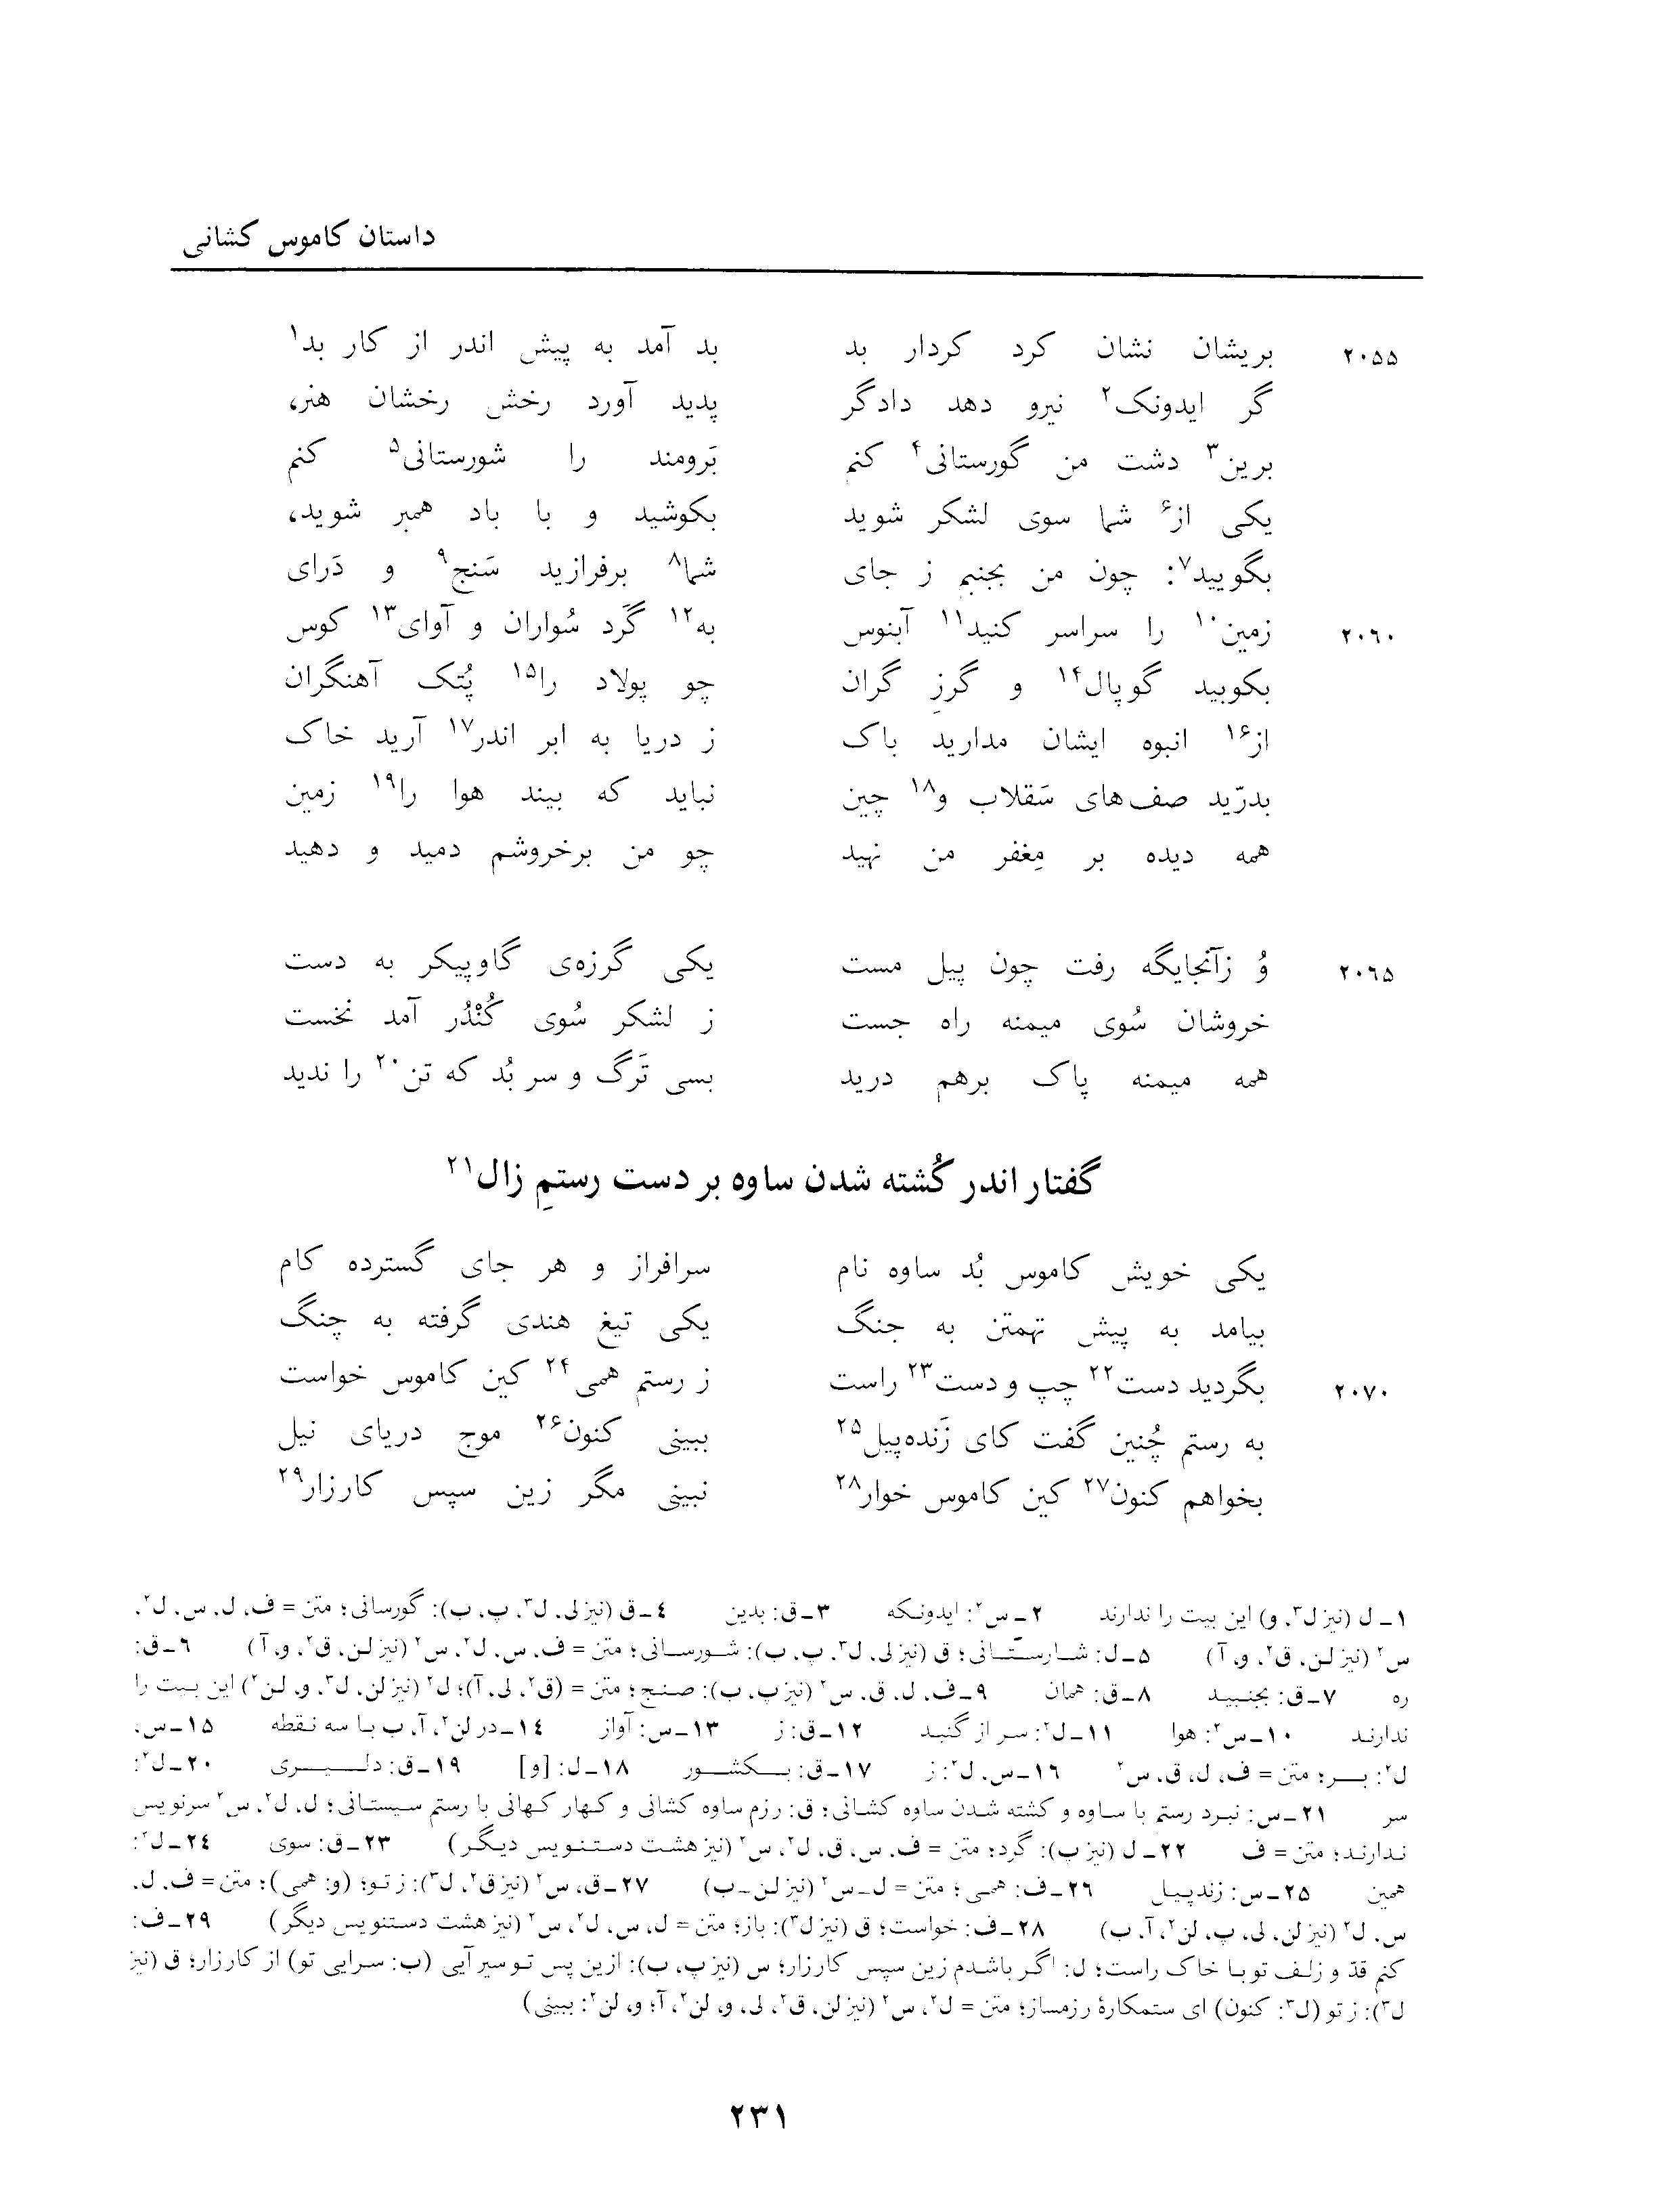 داستان کاموس کشانی
۲۰۵۵ بریشان نشان کرد کردار بد بد آمد به پیش اندر از کار بد۱
گر ایدونک۲ نیرو دهد دادگر پدید آورد رخش رخشان هنر،
برین۳ دشت من گورستانی۴ کنم بَرومند را شورستانی۵ کنم
یکی از۶ شما سوی لشکر شوید بکوشید و با باد همبر شوید،
بگویید۷: چون من بجنبم ز جای شما۸ برفرازید سَنج۹ و دَرای
۲۰۶۰ زمین۱۰ را سراسر کنید۱۱ آبنوس به۱۲ گَرد سُواران و آوای۱۳ کوس
بکوبید گوپال۱۴ و گرزِ گران چو پولاد را۱۵ پُتک آهنگران
از۱۶ انبوه ایشان مدارید باک ز دریا به ابر اندر۱۷ آرید خاک
بدرّید صف‌های سَقلاب و۱۸ چین نباید که بیند هوا را۱۹ زمین
همه دیده بر مِغفر من نهید چو من برخروشم دمید و دهید
۲۰۶۵ وُ زآنجایگه رفت چون پیل مست یکی گرزه‌ی گاوپیکر به دست
خروشان سُوی میمنه راه جست ز لشکر سُوی کُنْدُر آمد نخست
همه میمنه پاک برهم درید بسی تَرگ و سر بُد که تن۲۰ را ندید
گفتار اندر کُشته شدن ساوه بر دست رستمِ زال۲۱
یکی خویش کاموس بُد ساوه نام سرافراز و هر جای گسترده کام
بیامد به پیش تهمتن به جنگ یکی تیغ هندی گرفته به چنگ
۲۰۷۰ بگردید دست۲۲ چپ و دست۲۳ راست ز رستم همی۲۴ کین کاموس خواست
به رستم چُنین گفت کای ژَنده‌پیل۲۵ ببینی کنون۲۶ موج دریای نیل
بخواهم کنون۲۷ کین کاموس خوار۲۸ نبینی مگر زین سپس کارزار۲۹
۱ـ ل (نیز ل۳، و) این بیت را ندارند ۲ـ س۲: ایدونکه ۳ـ ق: بدین ۴ـ ق (نیز لی، ل۳، پ، ب): گورسانی؛ متن = ف، ل، س، ل۲،
س۲ (نیز لن، ق۲، و، آ) ۵ـ ل: شارستانی؛ ق (نیز لی، ل۳، پ، ب): شورسانی؛ متن = ف، س، ل۲، س۲ (نیز لن، ق۲، و، آ) ۶ـ ق:
ره ۷ـ ق: بجنبید ۸ـ ق: همان ۹ـ ف، ل، ق، س۲ (نیز پ، ب): صنج؛ متن = (ق۲، لی، آ)؛ ل۲ (نیز لن، ل۳، و، لن۲) این بیت را
ندارند ۱۰ـ س۲: هوا ۱۱ـ ل۲: سر از گنبد ۱۲ـ ق: ز ۱۳ـ س: آواز ۱۴ـ در لن۲، آ، ب با سه نقطه ۱۵ـ س،
ل۲: بر؛ متن = ف، ل، ق، س۲ ۱۶ـ س، ل۲: ز ۱۷ـ ق: بکشور ۱۸ـ ل: [و] ۱۹ـ ق: دلیری ۲۰ـ ل۲:
سر ۲۱ـ س: نبرد رستم با ساوه و کشته شدن ساوه کشانی؛ ق: رزم ساوه کشانی و کهار کهانی با رستم سیستانی؛ ل، ل۲، س۲ سرنویس
ندارند؛ متن = ف ۲۲ـ ل (نیز پ): گرد؛ متن = ف، س، ق، ل۲، س۲ (نیز هشت دستنویس دیگر) ۲۳ـ ق: سوی ۲۴ـ ل۲:
همین ۲۵ـ س: زندپیل ۲۶ـ ف: همی؛ متن = ل ـ س۲ (نیز لن ـ ب) ۲۷ـ ق، س۲ (نیز ق۲، ل۳): ز تو؛ (و: همی)؛ متن = ف، ل،
س، ل۲ (نیز لن، لی، پ، لن۲، آ، ب) ۲۸ـ ف: خواست؛ ق (نیز ل۳): باز؛ متن = ل، س، ل۲، س۲ (نیز هشت دستنویس دیگر) ۲۹ـ ف:
کنم قدّ و زلف تو با خاک راست؛ ل: اگر باشدم زین سپس کارزار؛ س (نیز پ، ب): ازین پس تو سیر آیی (ب: سرایی تو) از کارزار؛ ق (نیز
ل۳): ز تو (ل۳: کنون) ای ستمکارهٔ رزمساز؛ متن = ل۲، س۲ (نیز لن، ق۲، لی، و، لن۲، آ؛ و، لن۲: ببینی)
۲۳۱